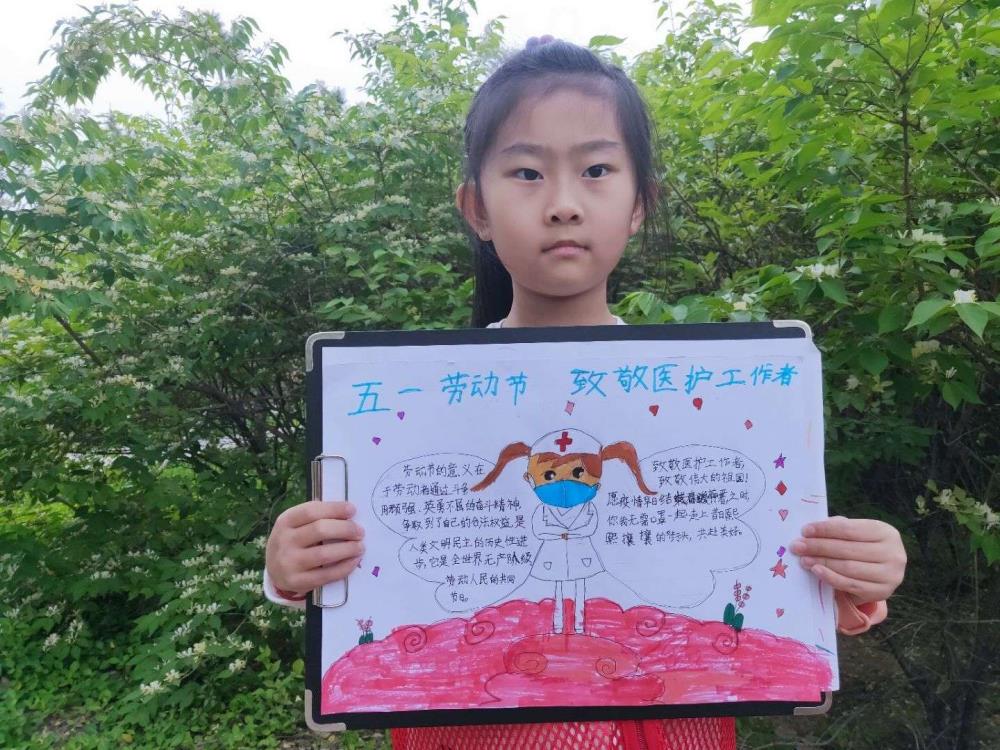 五一劳动节 致敬医护工作者
劳动节的意义在
于劳动者通过斗争
用顽强、英勇不屈的奋斗精神
争取到了自己的合法权益,是
人类文明民主的历史性进
步,它是全世界无产阶级
劳动人民的共同
节日。
致敬医护工作者,
致敬伟大的祖国!
愿疫情早日结
之时
你我无需口罩一起走上街熙
熙攘攘的街头,共赴美好。